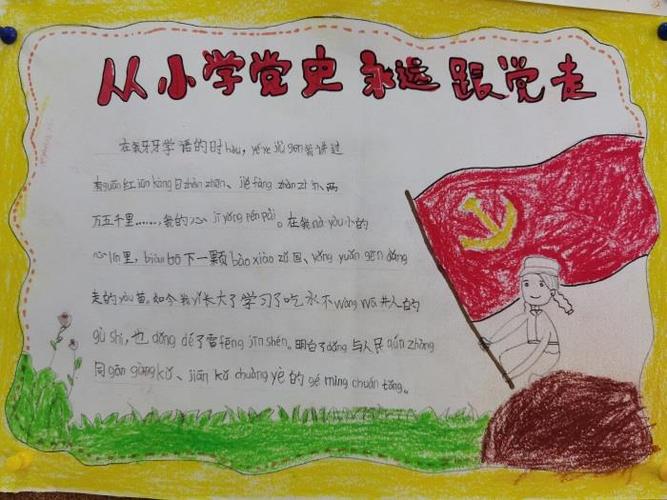 从小学党史 永远跟党走
在我牙牙学语的时hou，yéye jiù gēn我讲过
有guān红jūn kàng日zhàn zhēn、jiě fàng zhàn zhēn、两
万五千里……我的心jī yáng péng pài。在我nà yòu小的
心lín里，biàn bō下一颗bào xiào zǔ国、yǒng yuǎn gēn dǎng
走的yòu苗。如今我yǐ长大了学习了吃水不wàng wā井人的
gù shi，也dǒng dé了雷fēng jīn shén。明白了dǎng与人民qún zhòng
同gān gòng kǔ、jiān kǔ chuàng yè的gé mìng chuán tǒng。